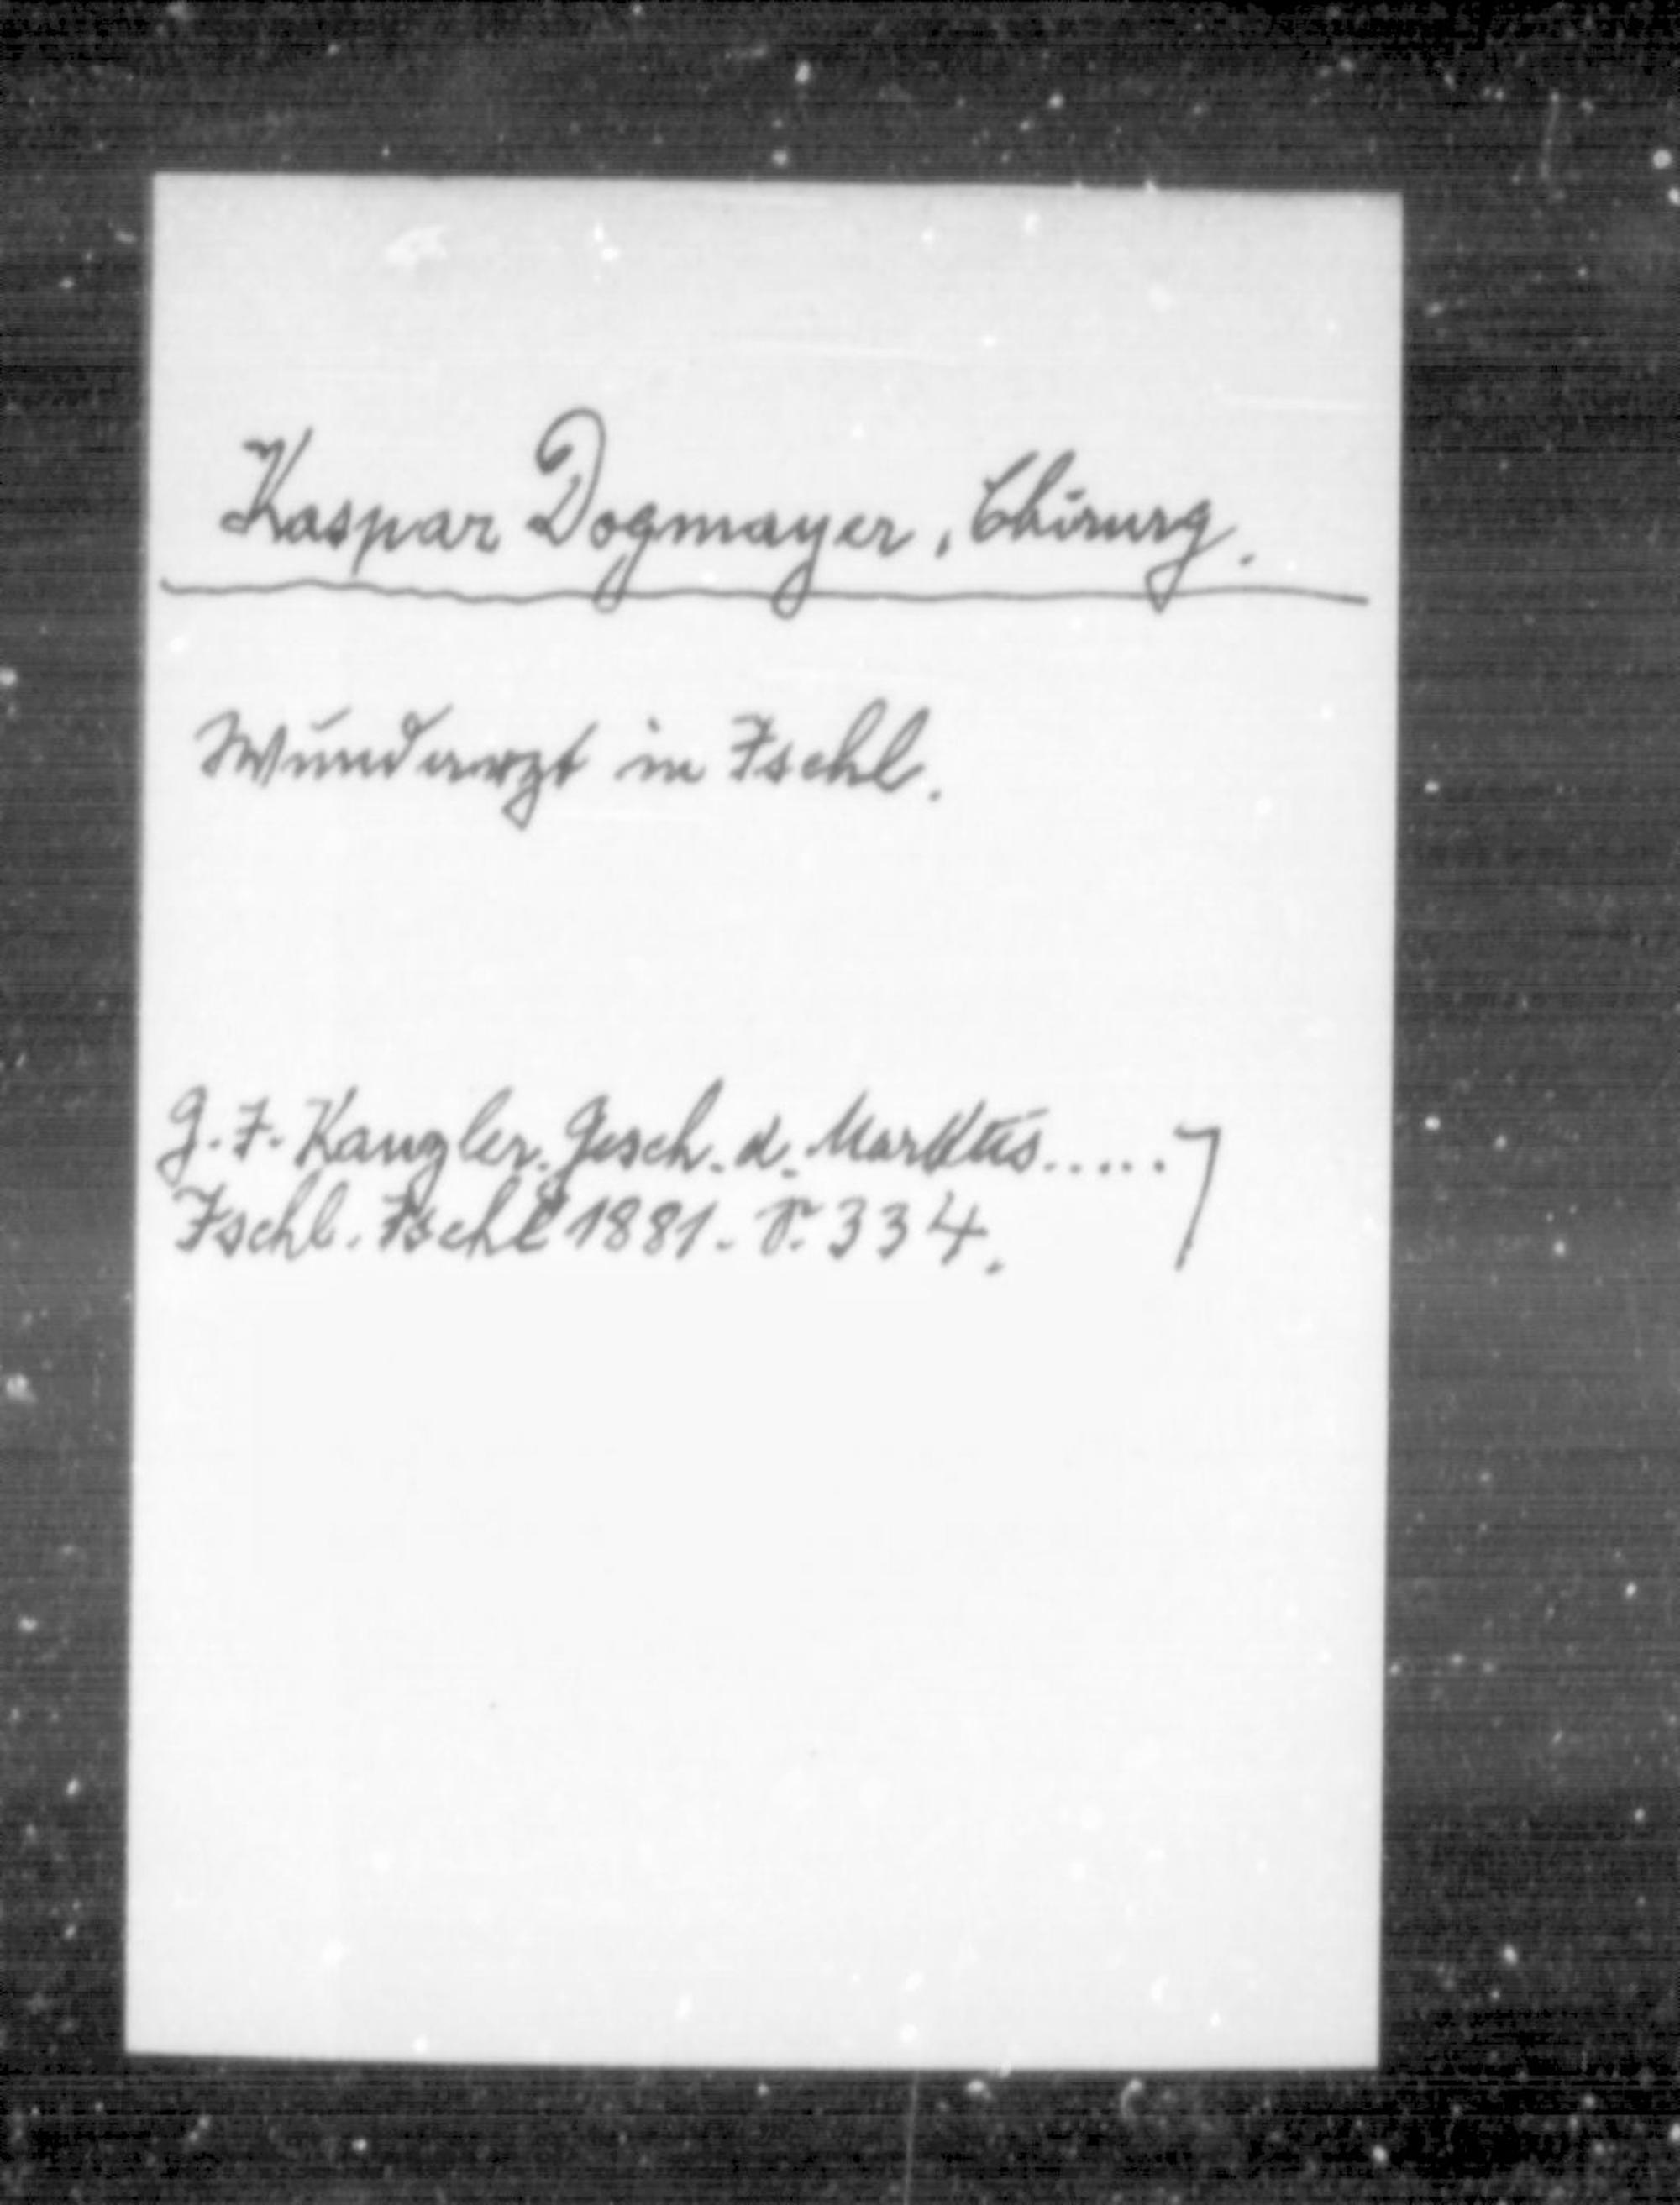 Kaspar Dogmayer, Chirurg.
Wundarzt in Ischl.
G. F. Kanzler. Gesch. d. Marktes.....
Ischl. Ischl 1881. S. 334.